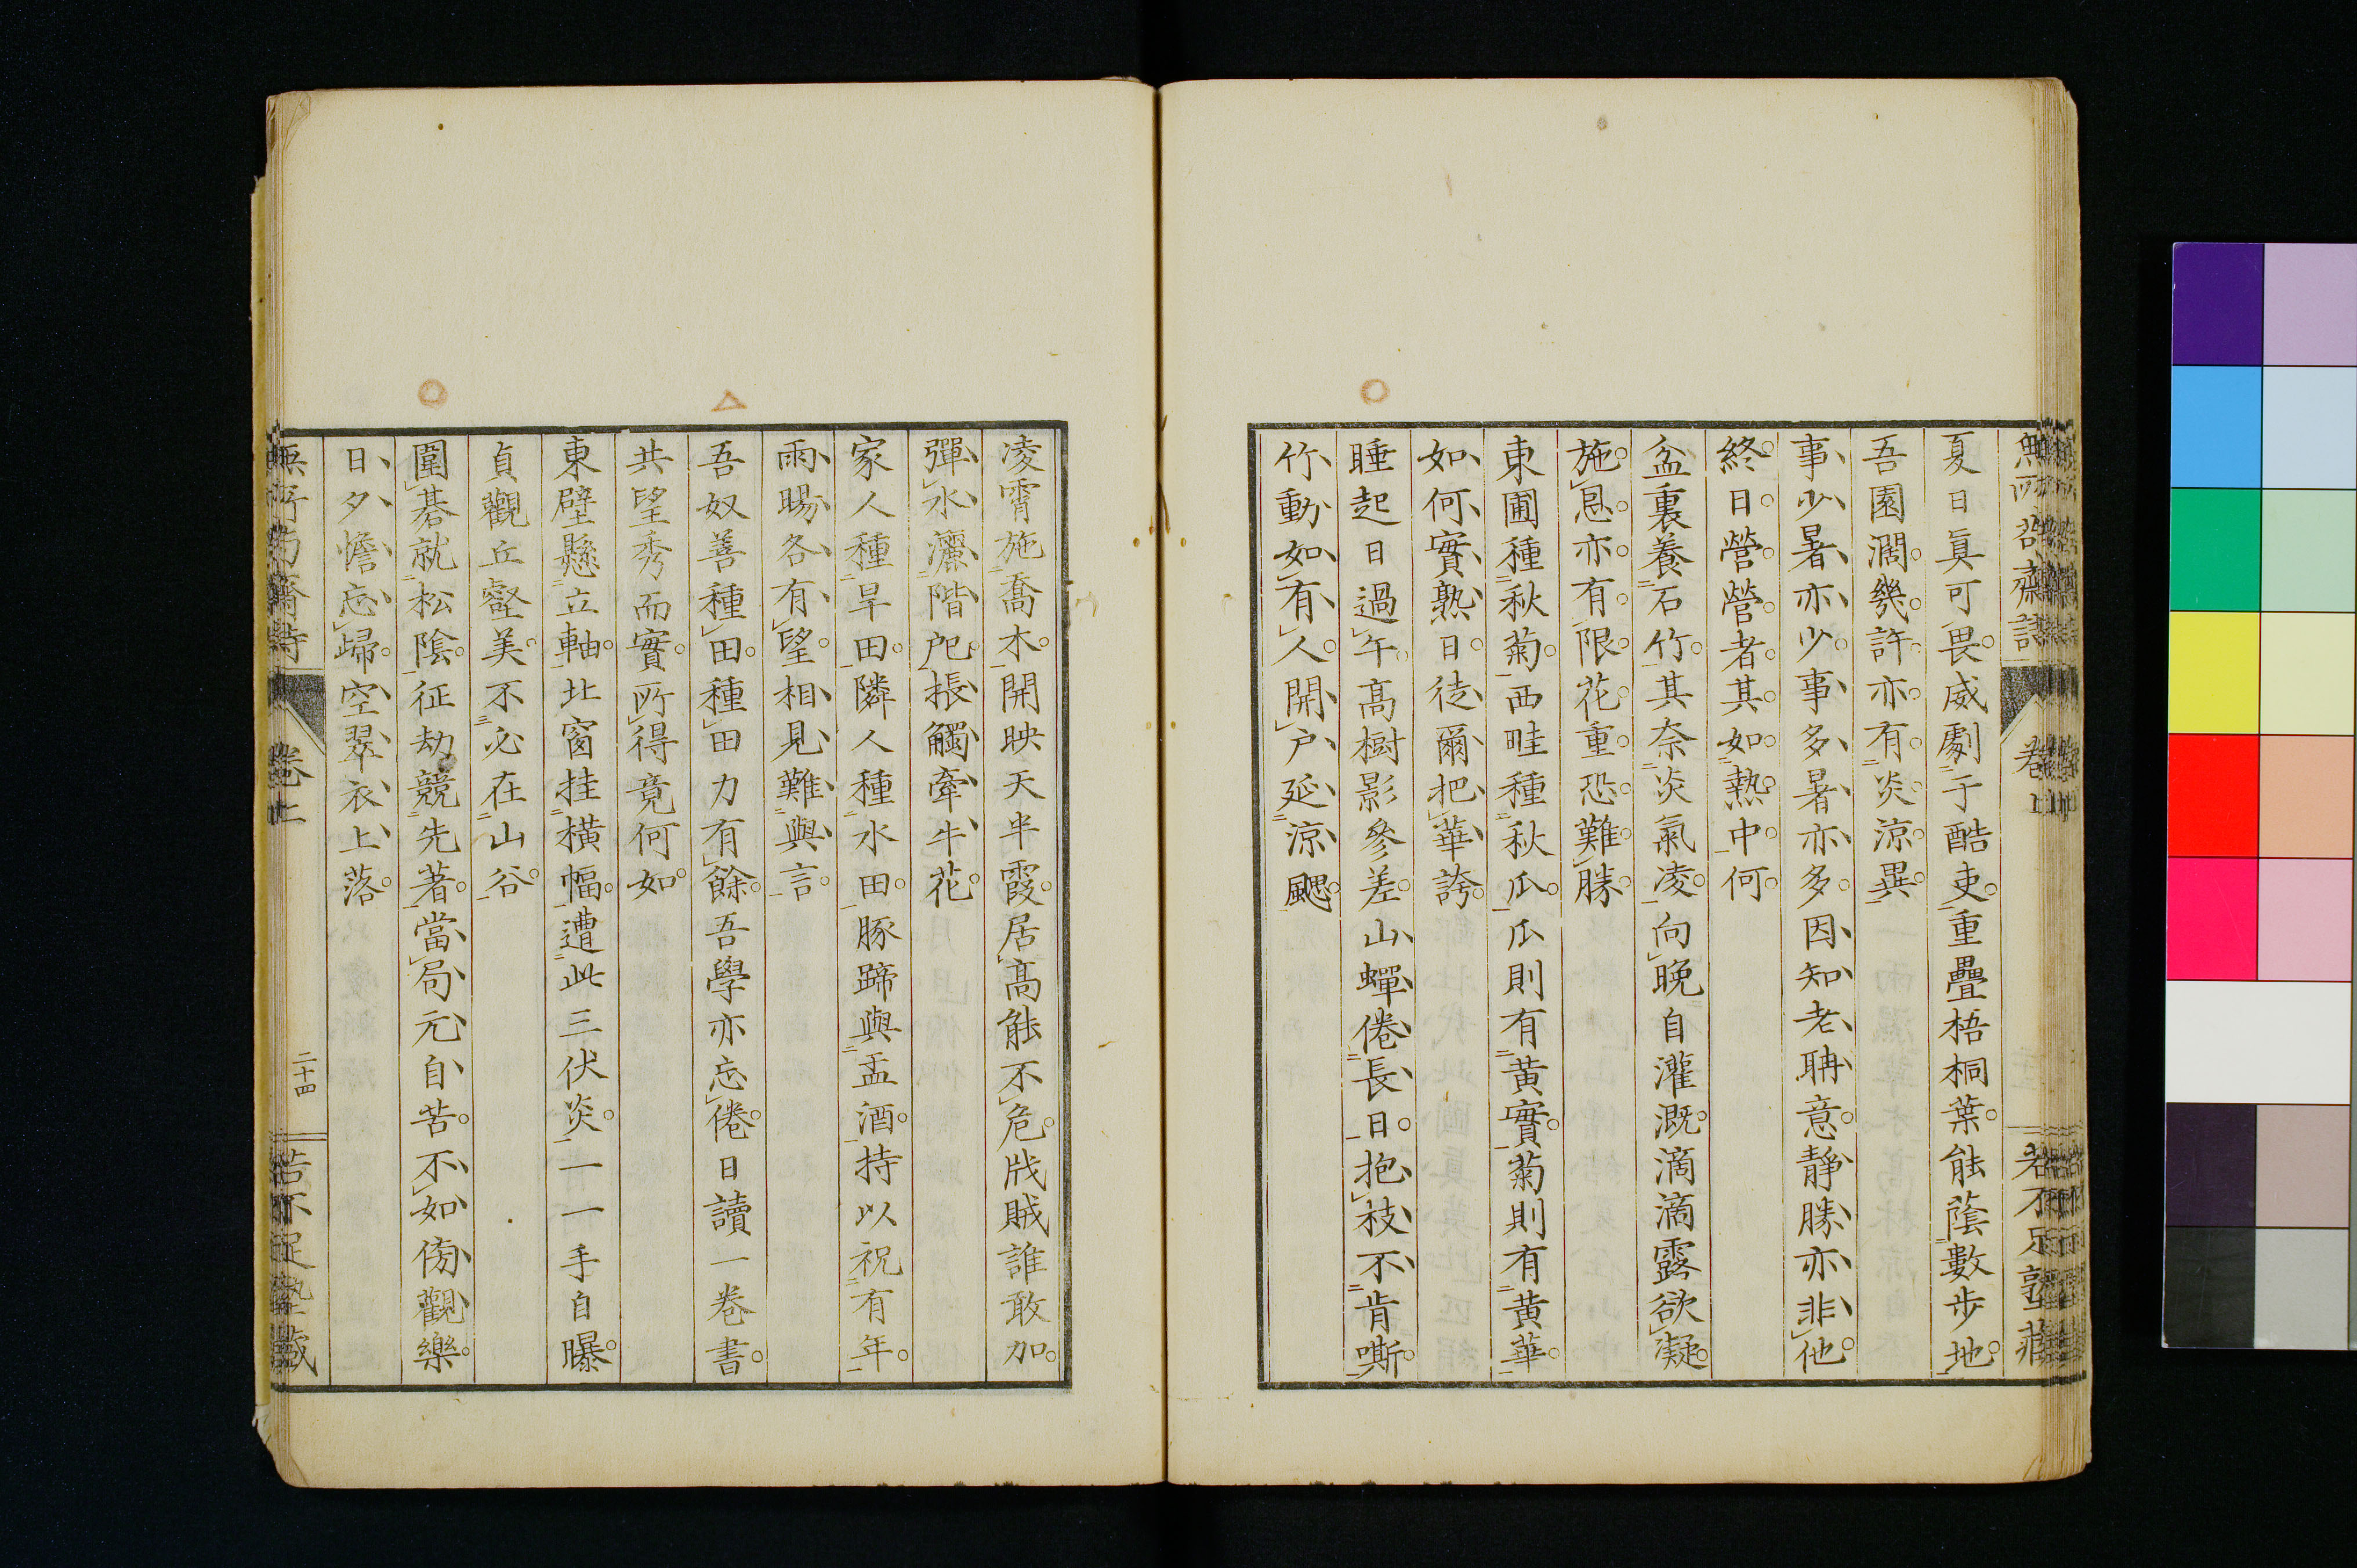 夏日眞可畏。威劇于酷吏。重疊梧桐葉。能蔭數步地。
吾園濶幾許。亦有炎涼異。
事少暑亦少。事多暑亦多。因知老聃意。靜勝亦非他。
終日營營者。其如熱中何。
盆裏養石竹。其奈炎氣凌。向晚自灌溉。滴滴露欲凝。
施恩亦有限。花重恐難勝。
東圃種秋菊。西畦種秋瓜。瓜則有黃實。菊則有黃華。
如何實熟日。徒爾把華誇。
睡起日過午。高樹影參差。山蟬倦長日。抱枝不肯嘶。
竹動如有人。開戶延涼颸。
凌霄施喬木。開映天半霞。居高能不危。戕賊誰敢加。
彈水灑階戺。振觸牽牛花。
家人種旱田。隣人種水田。豚蹄與盂酒。持以祝有年。
雨暘各有望。相見難與言。
吾奴善種田。種田力有餘。吾學亦忘倦。日讀一卷書。
共望秀而實。所得竟何如。
東壁懸立軸。北窗挂橫幅。遭此三伏炎。一一手自曝。
貞觀丘壑美。不必在山谷。
圍碁就松陰。征劫競先著。當局元自苦。不如傍觀樂。
日夕憺忘歸。空翠衣上落。
卷上
二十四